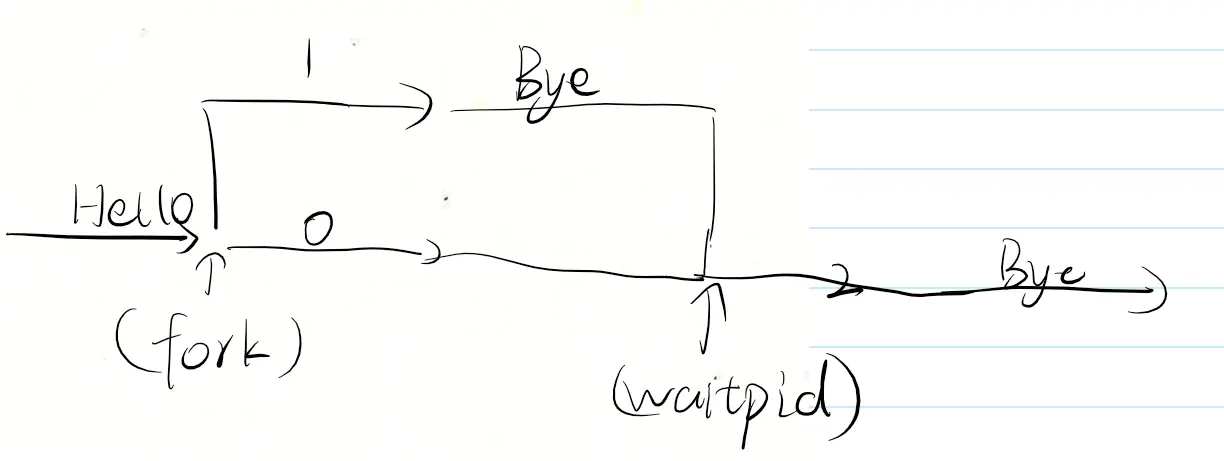 1
Bye
Hello
0
2
Bye
(fork)
(waitpid)